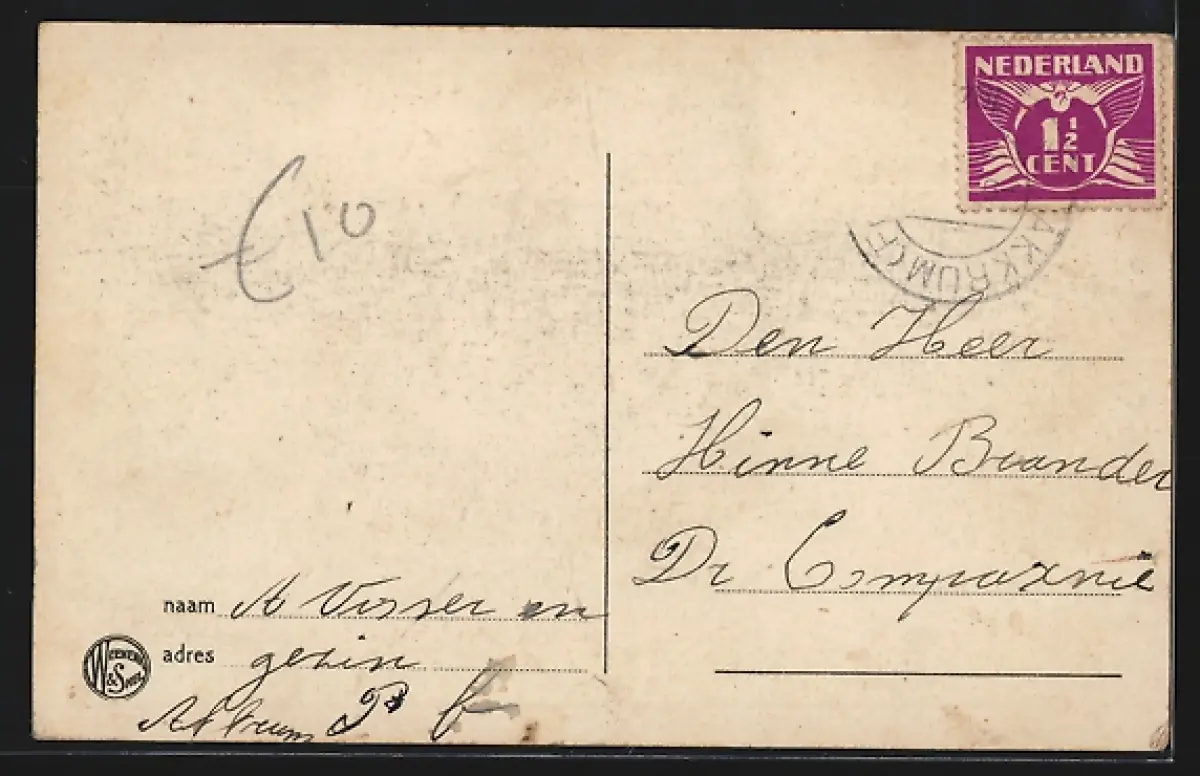 NEDERLAND
1½
CENT
AKKRUM (F
€10
Den Heer
Hinne Brander
De Compaxnie
naam A Visser en
adres gezin
Akkrum P f
WEENENK & SNEL